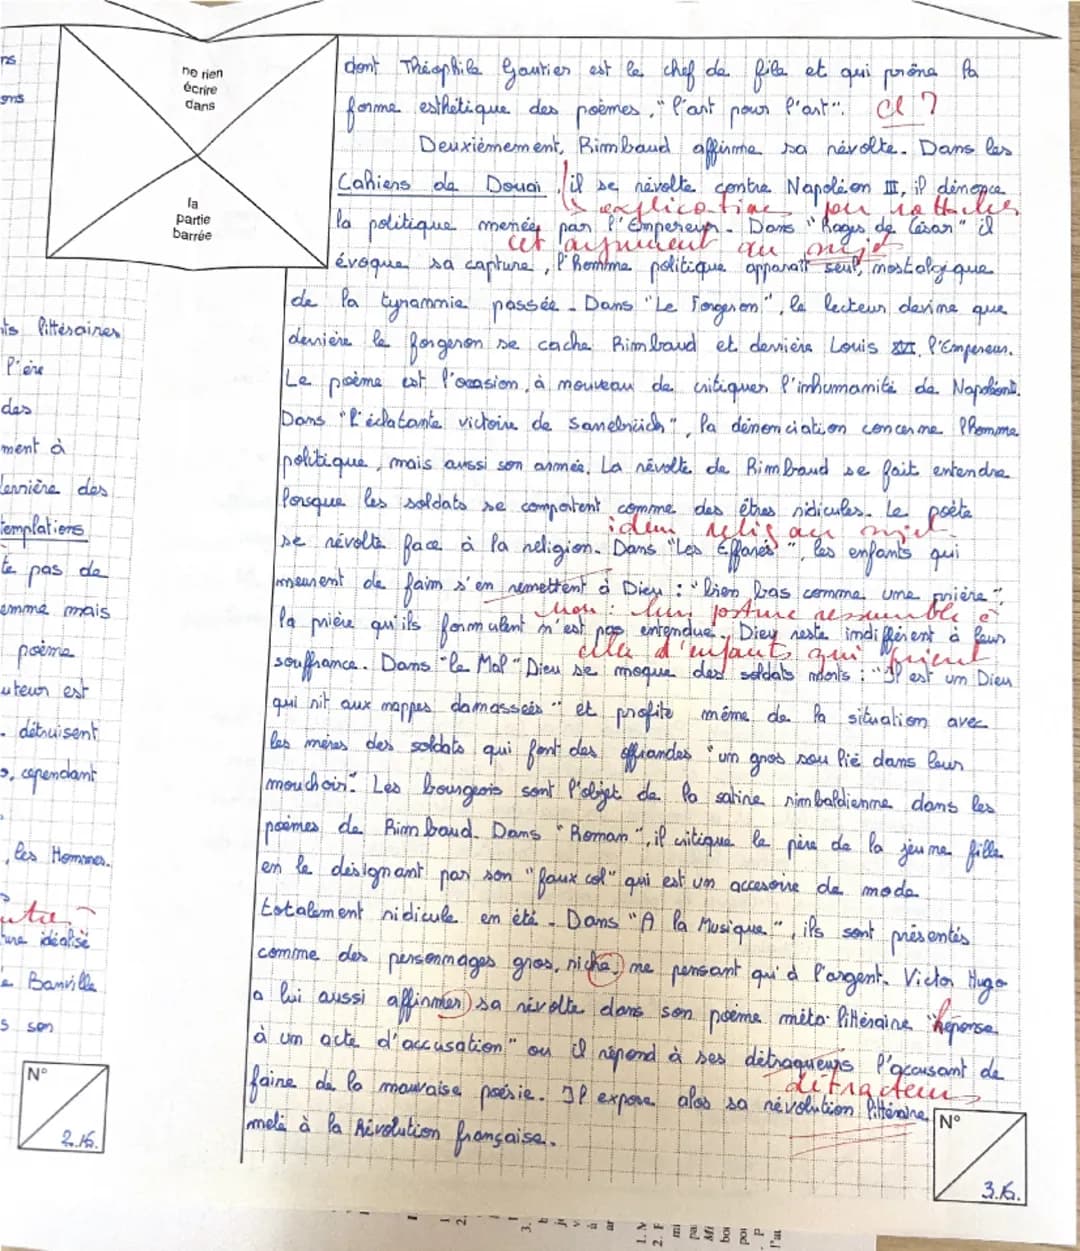 ne rien
écrire
dans
la
partie
barrée
ns
ons
nts littéraires
l'ère
des
ment à
dernière des
templations
te pas de
emme mais
poème
uteur est
détruisent
s, cependant
, les Hommes.
ture idéalisé
Banville
s son
N°
2.16.
dont Théophile Gautier est le chef de file et qui prône la
forme esthétique des poèmes, "l'art pour l'art". Cl ?
Deuxièmement, Rimbaud affirme sa révolte. Dans les
Cahiers de Douai, il se révolte contre Napoléon III, il dénonce
explication pour rattacher
la politique menée par l'Empereur. Dans "Rages de César" il
cet argument au sujet
évoque sa capture, l'homme politique apparaît seul, nostalgique
de la tyrannie passée. Dans "Le Forgeron", le lecteur devine que
derrière le forgeron se cache Rimbaud et derrière Louis XVI, l'Empereur.
Le poème est l'occasion, à nouveau de critiquer l'inhumanité de Napoléon.
Dans "l'éclatante victoire de Sarrebrück", la dénonciation concerne l'homme
politique, mais aussi son armée. La révolte de Rimbaud se fait entendre
lorsque les soldats se comportent comme des êtres ridicules. Le poète
idem relis au sujet
se révolte face à la religion. Dans "Les Effarés", les enfants qui
meurent de faim s'en remettent à Dieu : "bien bas comme une prière".
Non : leur posture ressemble à
la prière qu'ils formulent n'est pas entendue. Dieu reste indifférent à leur
celle d'enfants qui prient
souffrance. Dans "le Mal" Dieu se moque des soldats morts : "Il est un Dieu
qui rit aux nappes damassées" et profite même de la situation avec
les mères des soldats qui font des offrandes "un gros sou lié dans leur
mouchoir". Les bourgeois sont l'objet de la satire rimbaldienne dans les
poèmes de Rimbaud. Dans "Roman", il critique le père de la jeune fille
en le désignant par son "faux col" qui est un accesoire de mode
totalement ridicule en été. Dans "A la Musique", ils sont présentés
comme des personnages gros, riche, ne pensant qu'à l'argent. Victor Hugo
a lui aussi affirmer sa révolte dans son poème méta-littéraire "Réponse
à un acte d'accusation" ou il répond à ses détraqueurs l'accusant de
détracteurs
faire de la mauvaise poésie. Il expose alos sa révolution littéraire
melé à la Révolution française.
N°
3.16.